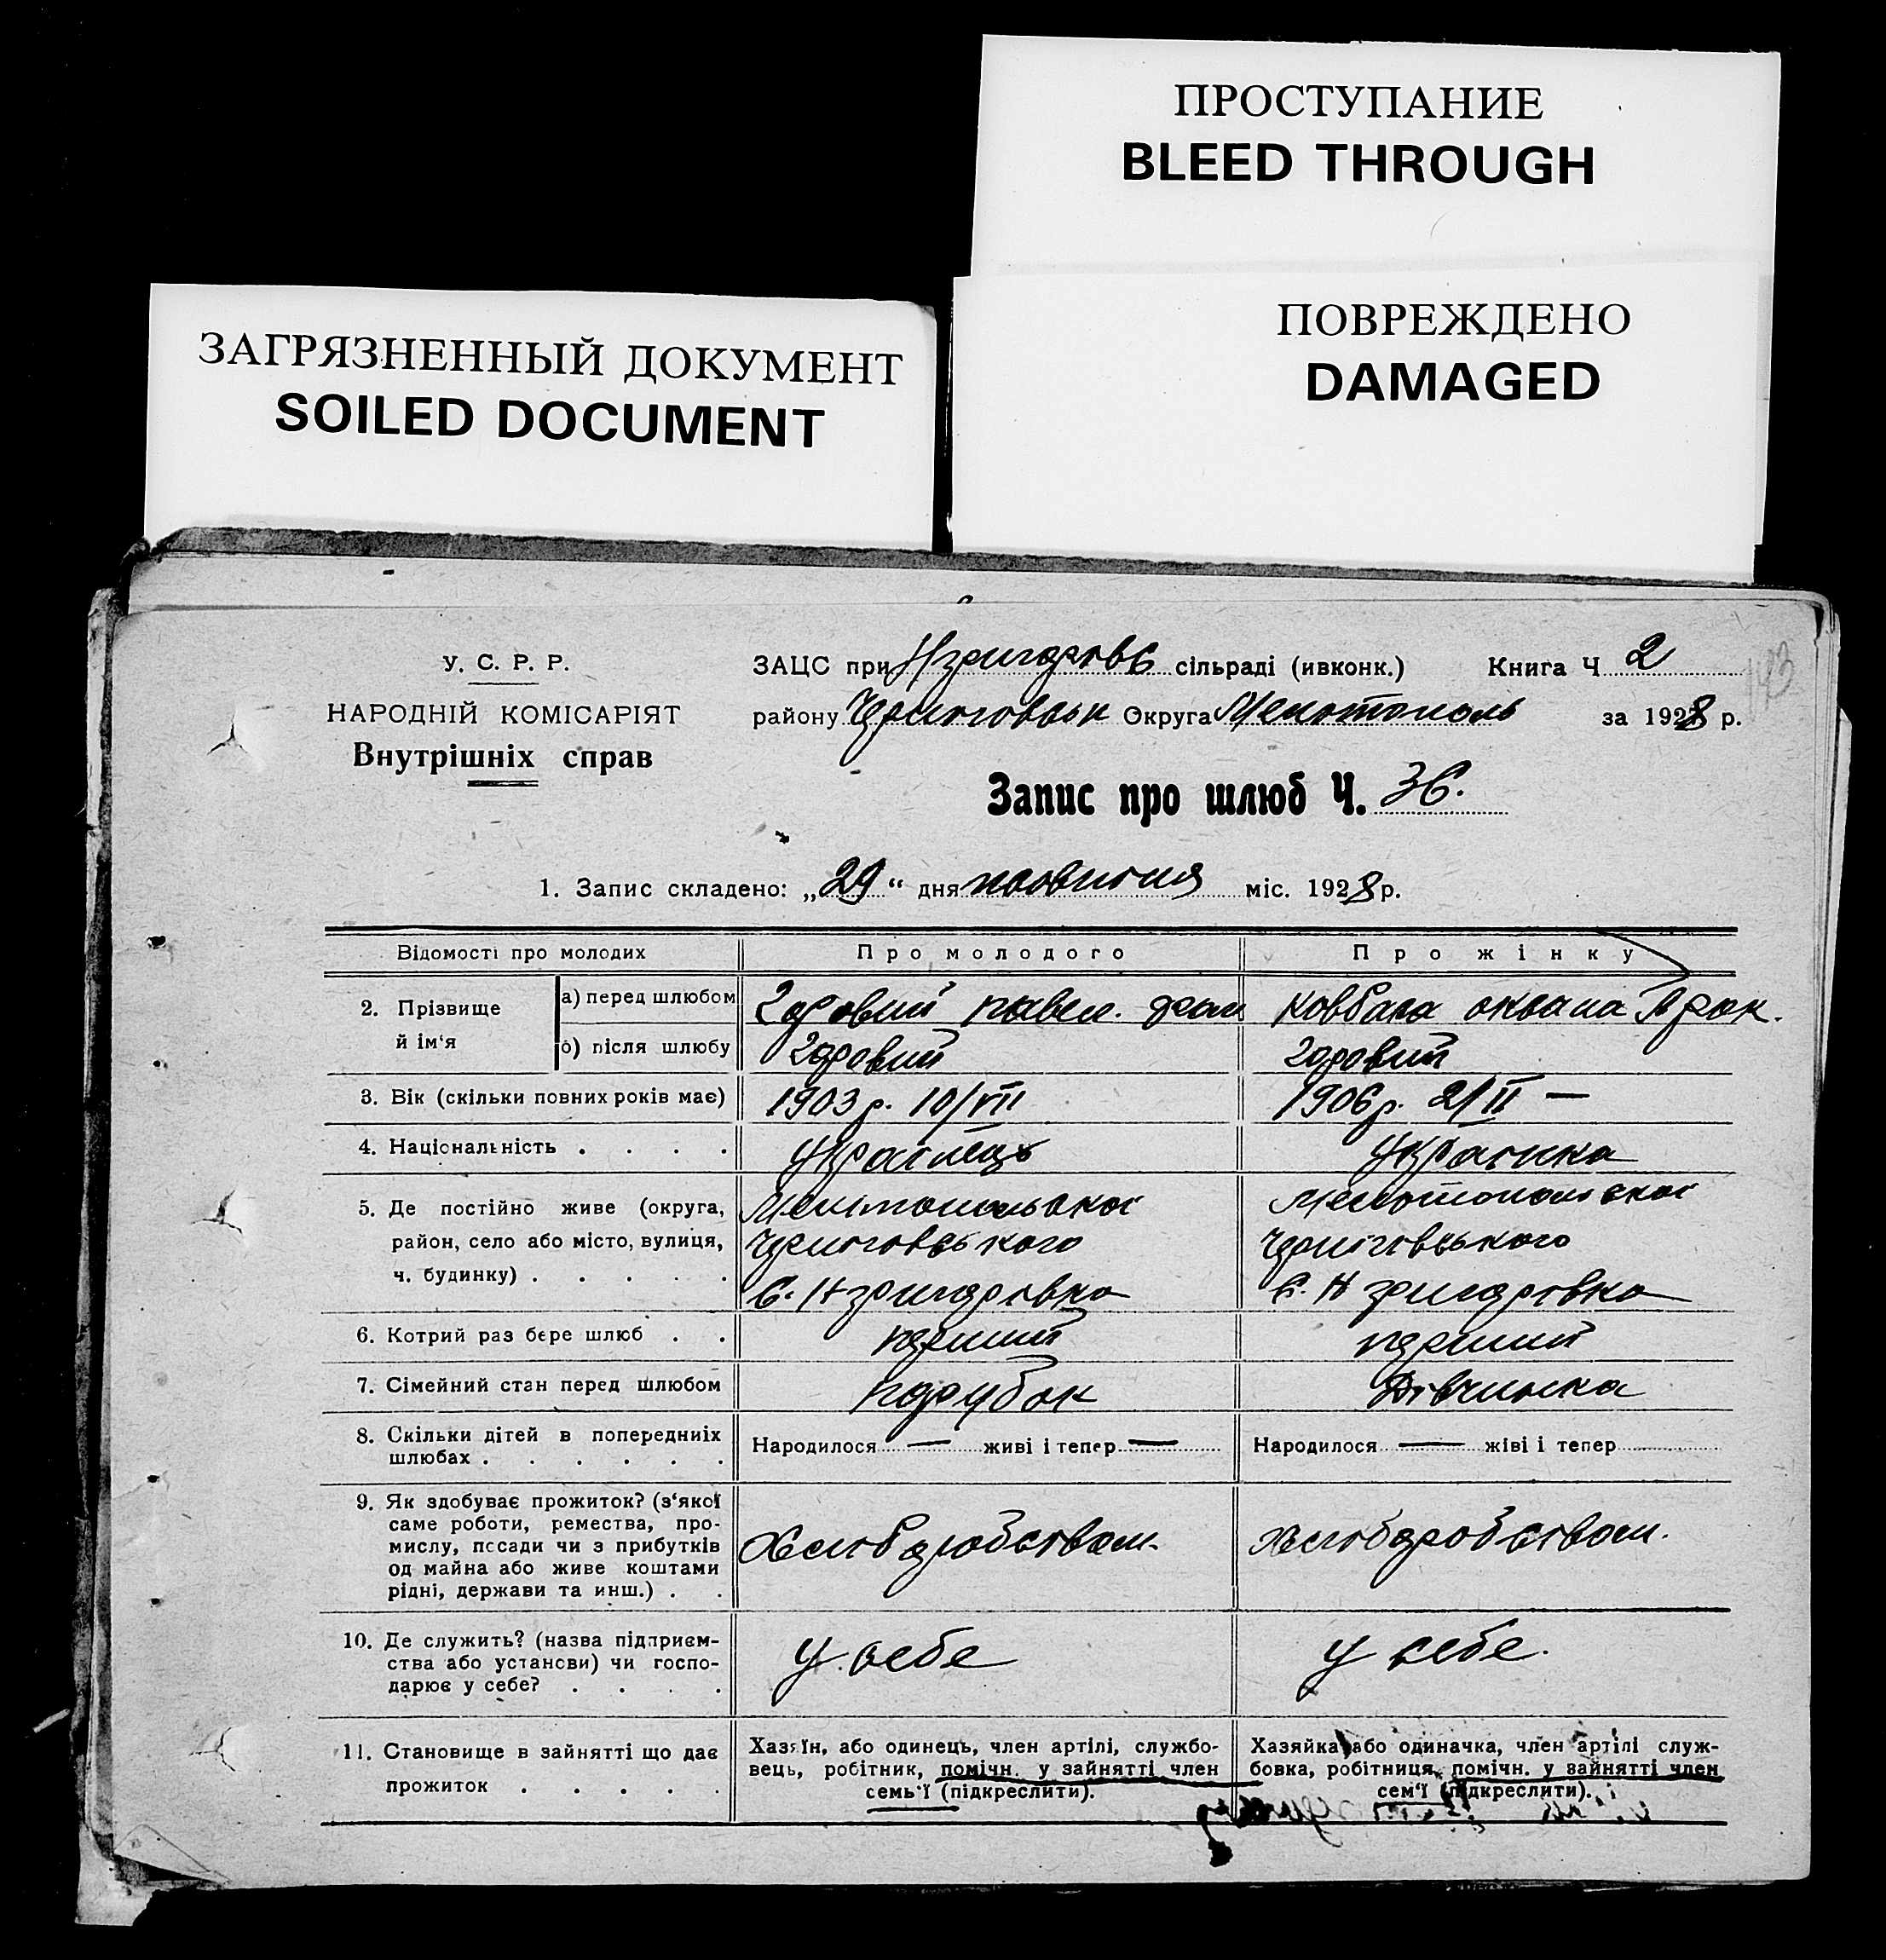 ПРОСТУПАНИЕ
BLEED THROUGH
ПОВРЕЖДЕНО
DAMAGED
ЗАГРЯЗНЕННЫЙ ДОКУМЕНТ
SOILED DOCUMENT
У. С. Р. Р.
НАРОДНІЙ КОМІСАРІЯТ
Внутрішніх справ
ЗАЦС при Нзригорівс сільраді (ивконк.) Книга Ч 2
району Черниговськ Округа Мелітополь за 1928 р.
Запис про шлюб Ч. 36.
1. Запис складено: „29“ дня міс. 1928 р.
Відомості про молодих Про молодого Про жінку
2. Прізвище й ім‘я
а) перед шлюбом павел. Ковбаса оксана
б) після шлюбу
3. Вік (скільки повних років має) 1903 р. 10/VII 1906 р. 2/II —
4. Національність . . . . Українець Українка
5. Де постійно живе (округа, Мелітопольської Мелітопольської
район, село або місто, вулиця, Черниговського Черниговського
ч. будинку) . . . . . с. Н григорівка с. Н григорівка
6. Котрий раз бере шлюб . . перший перший
7. Сімейний стан перед шлюбом парубок Дівчинка
8. Скільки дітей в попередниіх
шлюбах . . . . . .
Народилося — живі і тепер —
Народилося — жіві і тепер
9. Як здобуває прожиток? (з‘якої
саме роботи, ремества, про-
мислу, посади чи з прибутків
од майна або живе коштами
рідні, держави та инш.) . .
Хліборобством.
Хліборобством.
10. Де служить? (назва підприєм-
ства або установи) чи госпо-
дарює у себе? . . . .
У себе
У себе.
11. Становище в зайнятті що дає
прожиток . . . . .
Хазяїн, або одинець, член артілі, службо-
вець, робітник, помічн. у зайнятті член
семь‘ї (підкреслити).
Хазяйка або одиначка, член артілі служ-
бовка, робітниця, помічн. у зайнятті член
сем‘ї (підкреслити).